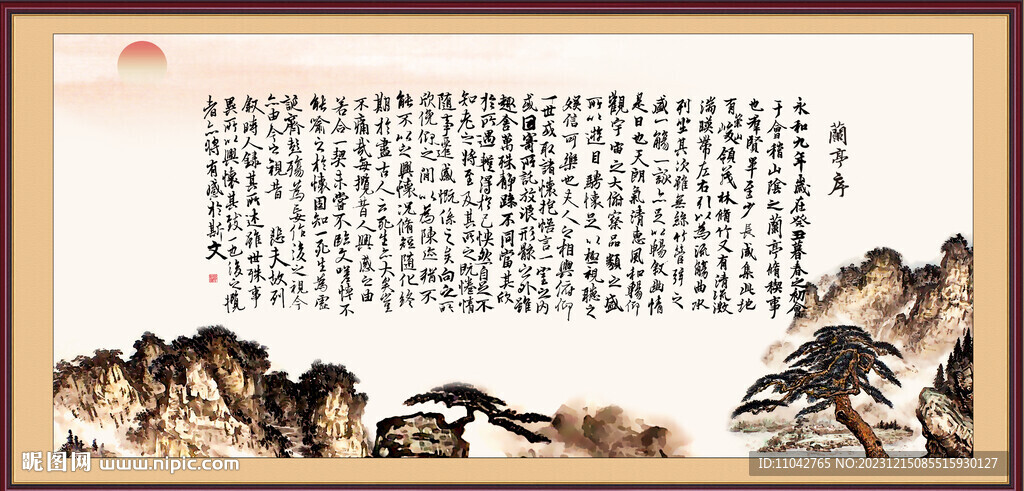 蘭亭序
永和九年歲在癸丑暮春之初會
于會稽山陰之蘭亭脩稧事
也羣賢畢至少長咸集此地
有崇山峻領茂林脩竹又有清流激
湍暎帶左右引以為流觴曲水
列坐其次雖無絲竹管弦之
盛一觴一詠亦足以暢叙幽情
是日也天朗氣清惠風和暢仰
觀宇宙之大俯察品類之盛
所以遊目騁懷足以極視聽之
娛信可樂也夫人之相與俯仰
一世或取諸懷抱悟言一室之內
或因寄所託放浪形骸之外雖
趣舍萬殊靜躁不同當其欣
於所遇輙得於己怏然自足不
知老之將至及其所之既惓情
隨事遷感慨係之矣向之所
欣俛仰之間以為陳迹猶不
能不以之興懷況脩短隨化終
期於盡古人云死生亦大矣豈
不痛哉每攬昔人興感之由
若合一契未嘗不臨文嗟悼不
能喻之於懷固知一死生為虛
誕齊彭殤為妄作後之視今
亦由今之視昔 悲夫故列
叙時人錄其所述雖世殊事
異所以興懷其致一也後之攬
者亦將有感於斯文
昵图网 www.nipic.com
ID:11042765 NO:20231215085515930127